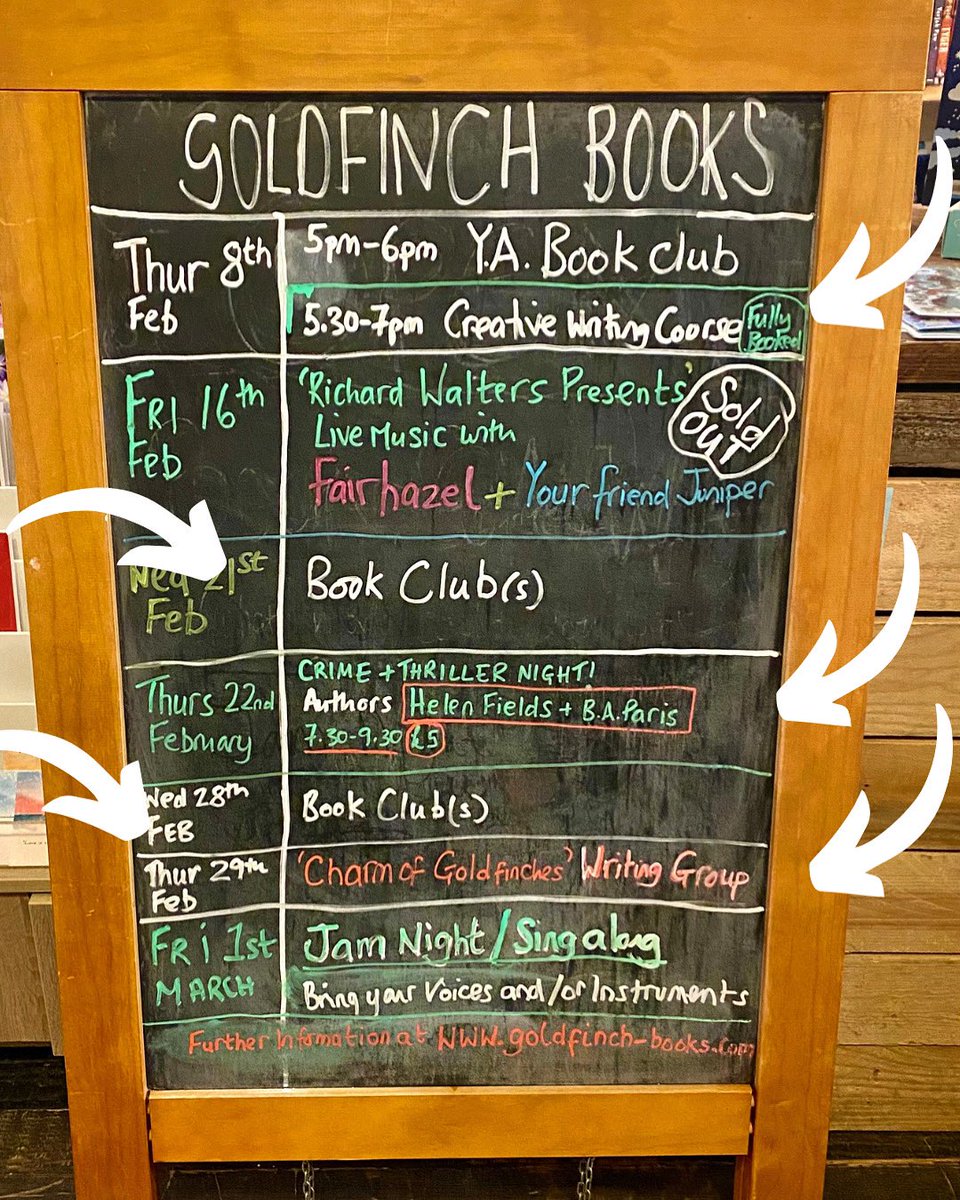 GOLDFINCH BOOKS
Thur 8th
Feb
5pm-6pm Y.A. Book Club
5.30-7pm Creative Writing Course Fully Booked
FRI 16th
Feb
'Richard Walters Presents'
Live Music with
Fairhazel + Your friend Juniper
Sold
OUT
Wed 21st
Feb
Book Club(s)
Thurs 22nd
February
CRIME + THRILLER NIGHT!
Authors Helen Fields + B.A. Paris
7.30-9.30 £5
Wed 28th
FEB
Book Club(s)
Thur 29th
Feb
'Charm of Goldfinches' Writing Group
FRi 1st
MARCH
Jam Night/Singalong
Bring your Voices and/or Instruments
Further Information at WWW.goldfinch-books.com